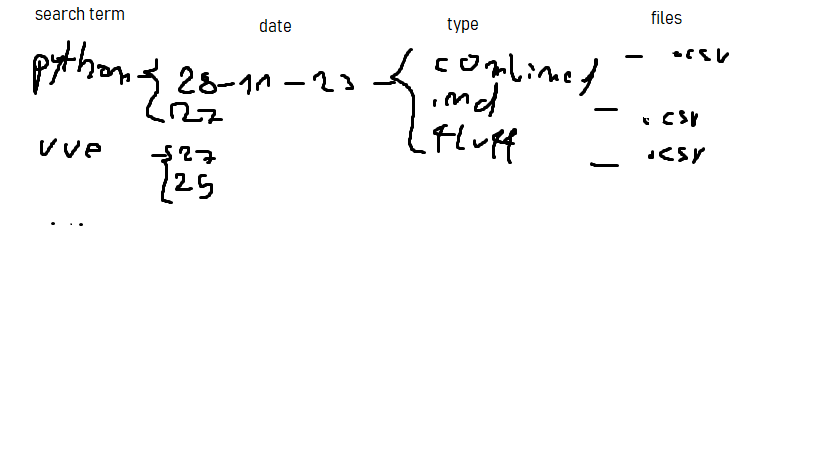 search term date type files
python 28-11-23 combined - .csv
27 ind - .csv
fluff - .csv
vve 27
25
...